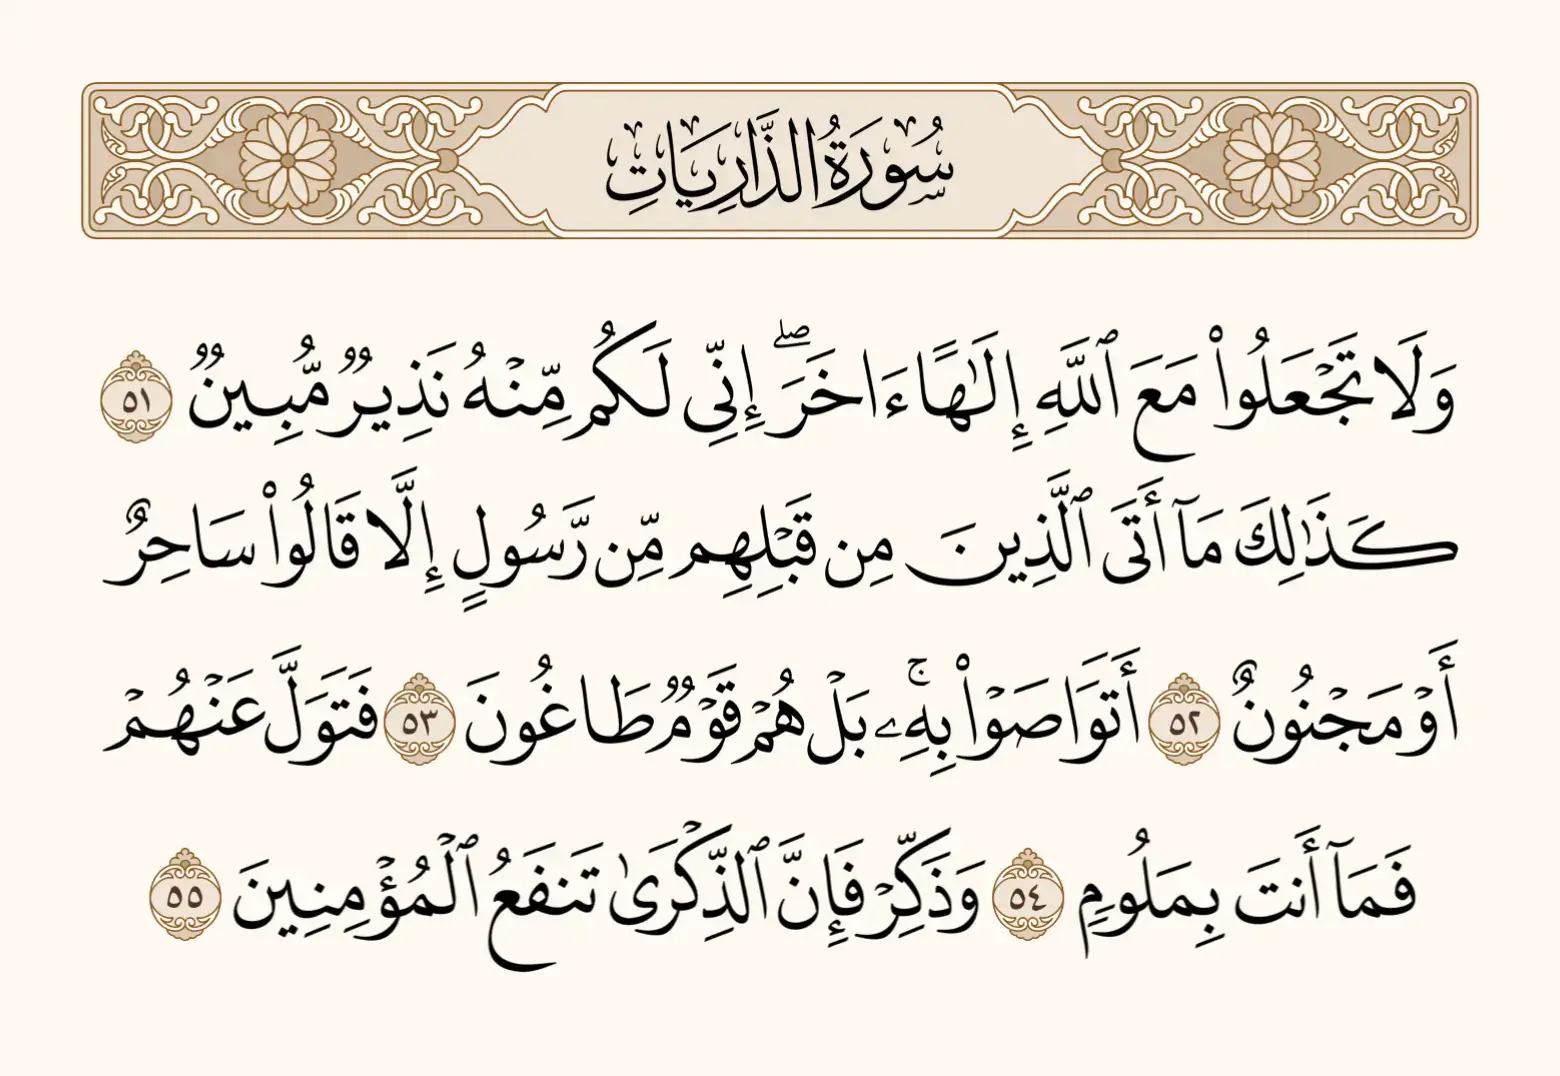 سُورَةُ الذَّارِيَاتِ
وَلَا تَجۡعَلُواْ مَعَ ٱللَّهِ إِلَٰهًا ءَاخَرَۖ إِنِّي لَكُم مِّنۡهُ نَذِيرٞ مُّبِينٞ ٥١
كَذَٰلِكَ مَآ أَتَى ٱلَّذِينَ مِن قَبۡلِهِم مِّن رَّسُولٍ إِلَّا قَالُواْ سَاحِرٌ
أَوۡ مَجۡنُونٌ ٥٢ أَتَوَاصَوۡاْ بِهِۦۚ بَلۡ هُمۡ قَوۡمٞ طَاغُونَ ٥٣ فَتَوَلَّ عَنۡهُمۡ
فَمَآ أَنتَ بِمَلُومٖ ٥٤ وَذَكِّرۡ فَإِنَّ ٱلذِّكۡرَىٰ تَنفَعُ ٱلۡمُؤۡمِنِينَ ٥٥